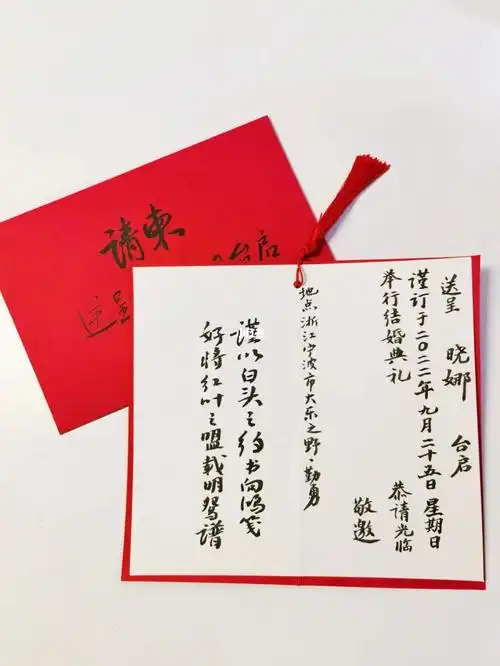 请柬
送呈
台启
送呈 晓娜 台启
谨订于二〇二二年九月二十五日 星期日
举行结婚典礼
恭请光临
敬邀
地点浙江宁波市大东之野·勤勇
谨以白头之约书向鸿笺
好将红叶之盟载明鸳谱